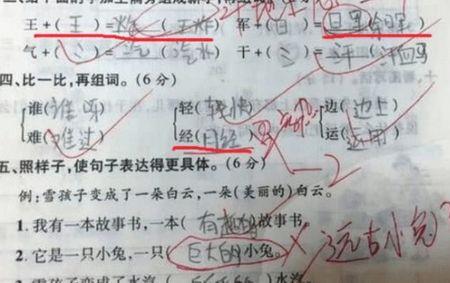 王+(王)=炸(王炸) 军+(日)=
气+(氵)=汽(汽水) 干+(氵)=汗(汗血马)
四、比一比,再组词。(6分)
谁(谁呀) 轻(轻快) 边(边上)
难(难过) 经(日经) 运(运用)
-2
五、照样子,使句子表达得更具体。(6分)
例:雪孩子变成了一朵白云,一朵(美丽的)白云。
1.我有一本故事书,一本(有趣的)故事书。
2.它是一只小兔,一只(巨大的)小兔。 远古小兔?
3.雪孩子变成了水汽